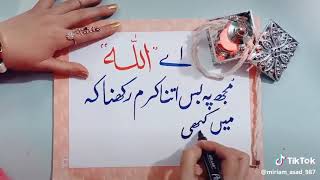 اے "اللہ"
مُجھ پہ بس اتنا کرم رکھنا کہ
میں کبھی
TikTok
@miriam_asad_987